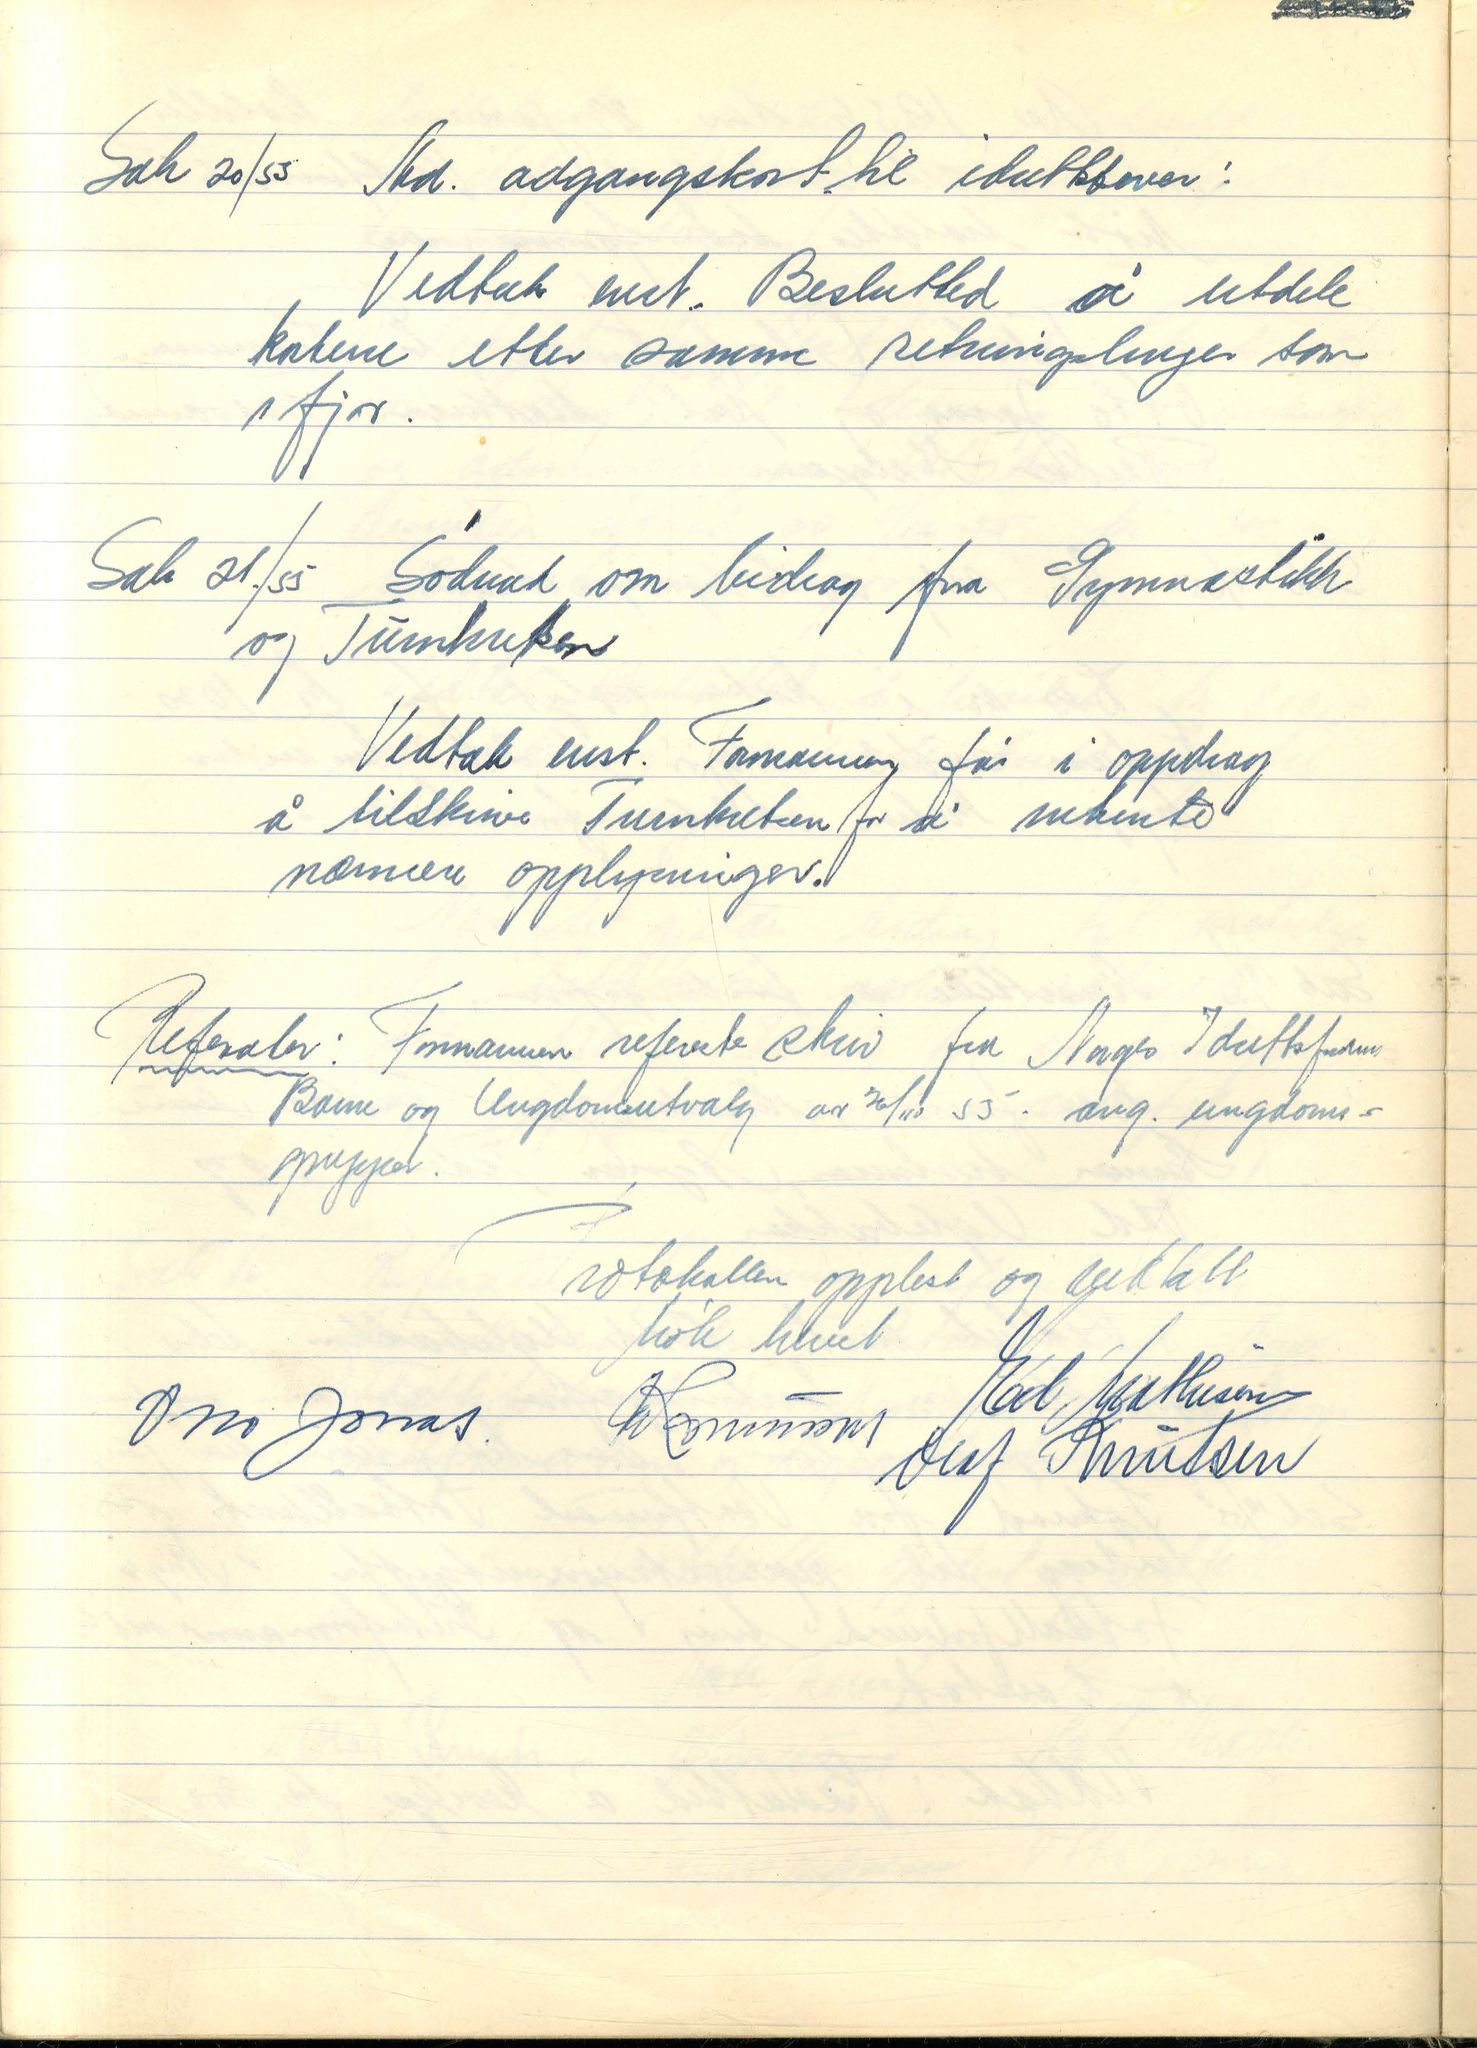 Sak 20/55 Ved. adgangskort til idrettstevner:
Vedtak enst. Beslutted å utdele
kortene etter samme retningslinjer som
i fjor.
Sak 21/55 Södnad om bidrag fra Gymnastikk
og Turnkretsen
Vedtak enst. Formannen får i oppdrag
å tilskrive Turnkretsen for å inhente
nærmere opplysninger.
Referater: Formannen refererte skriv fra Norges Idrettsforbunds
Barne og Ungdomsutvalg av 20/10 55. ang. ungdoms-
grupper.
Protokollen opplest og vedtatt
Möte hevet
Otto Jonas. Karl Mathisen
Olaf Knutsen